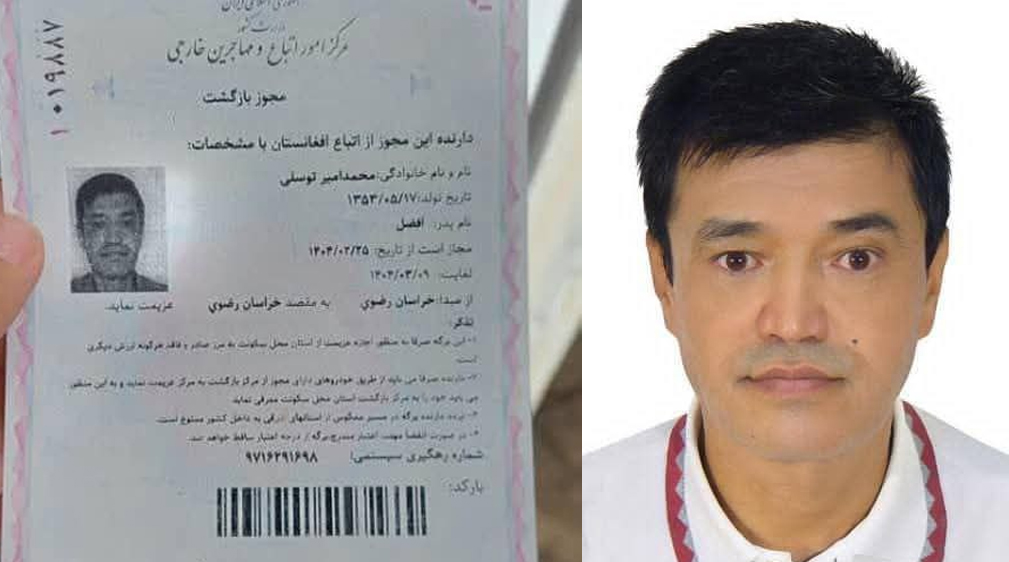 جمهوری اسلامی ایران
وزارت کشور
مرکز امور اتباع و مهاجرین خارجی
۱۰۱۹۸۸۷
مجوز بازگشت
دارنده این مجوز از اتباع افغانستان با مشخصات:
نام و نام خانوادگی: محمدامیر توسلی
تاریخ تولد: ۱۳۵۳/۰۵/۱۷
نام پدر: افضل
مجاز است از تاریخ: ۱۴۰۴/۰۲/۲۵
لغایت: ۱۴۰۴/۰۳/۰۹
از مبدا: خراسان رضوي به مقصد خراسان رضوي عزیمت نماید.
تذکر:
۱- این برگه صرفا به منظور اجازه عزیمت از استان محل سکونت به مرز صادر و فاقد هرگونه ارزش دیگری
است.
۲- دارنده صرفا می باید از طریق خودروهای دارای مجوز از مرکز بازگشت به مرکز عزیمت نماید و به این منظور
می باید خود را به مرکز بازگشت استان محل سکونت معرفی نماید
۳- تردد دارنده برگه در مسیر معکوس از استانهای شرقی به داخل کشور ممنوع است.
۴- در صورت انقضا مهلت اعتبار مندرج برگه از درجه اعتبار ساقط خواهد شد.
شماره رهگیری سیستمی: ۹۷۱۶۲۹۱۶۹۸
بارکد: